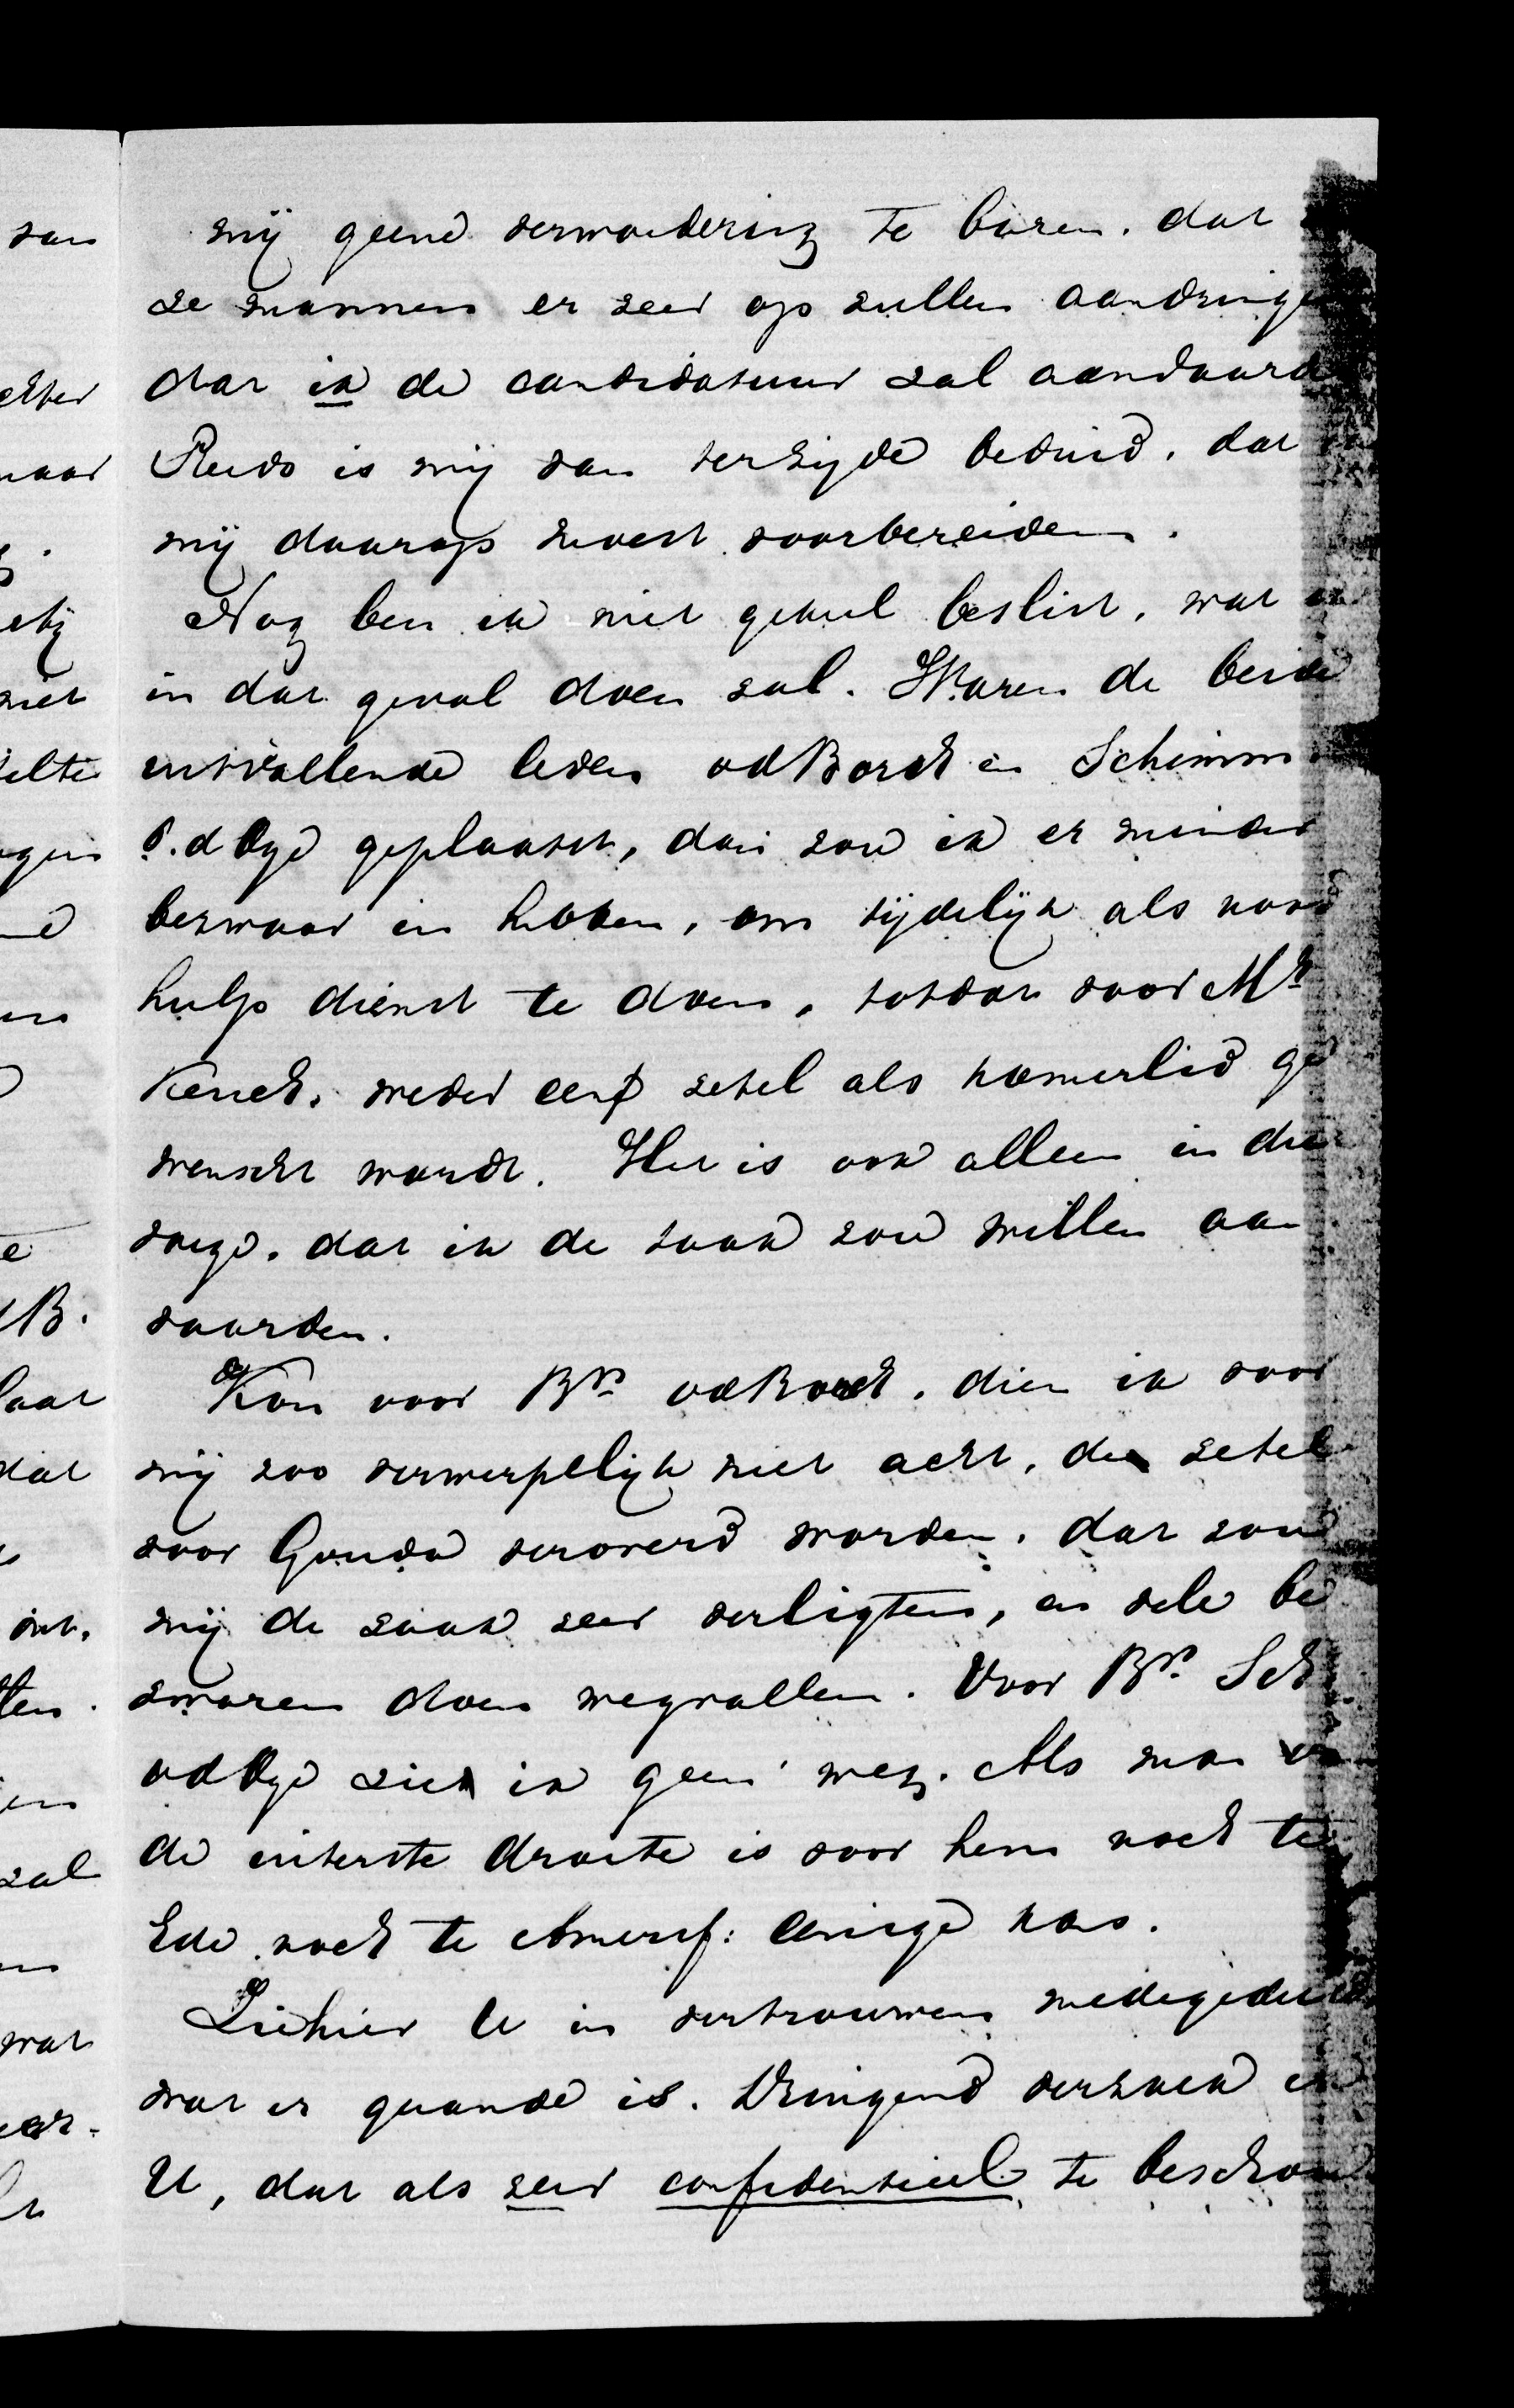 mij geene verwondering te baren, dat
de mannen er zeer op zullen aandringe
dat ik de candidatuur zal aanvaard
Reeds is mij van terzijde beduid, dat
mij daarop moest voorbereiden.
Nog ben ik niet geheel beslist, wat
in dat geval doen zal. Waren de beide
ontvallende leden vdBorch en Schimm
v.d Oye geplaatst, dan zou ik er minder
bezwaar in hebben, om tijdelijk als nood
hulp dienst te doen, totdat voor Mr
Keuch. weder een zetel als kamerlid ge
wenscht wordt. Het is ook alleen in die
voege, dat ik de taak zou willen aan
vaarden.
Kon voor Bn vdBorch, dien ik voor
mij zoo verwerpelijk niet acht, de zetel
voor Gouda veroverd worden, dat zou
mij de zaak zeer verligten, en vele be
zwaren doen wegvallen. Voor Bn Sch
vd Oye zie ik geen weg. Als man v
de uiterste droite is voor hem noch te
Ede, noch te Amersf: eenige kans.
Ziehier U in vertrouwen medegedeeld
wat er gaande is. Dringend verzoek ik
U, dat als zeer confidentieel te beschou
van
echter
maar
niet
B.
laat
dat
ten.
zal
wat